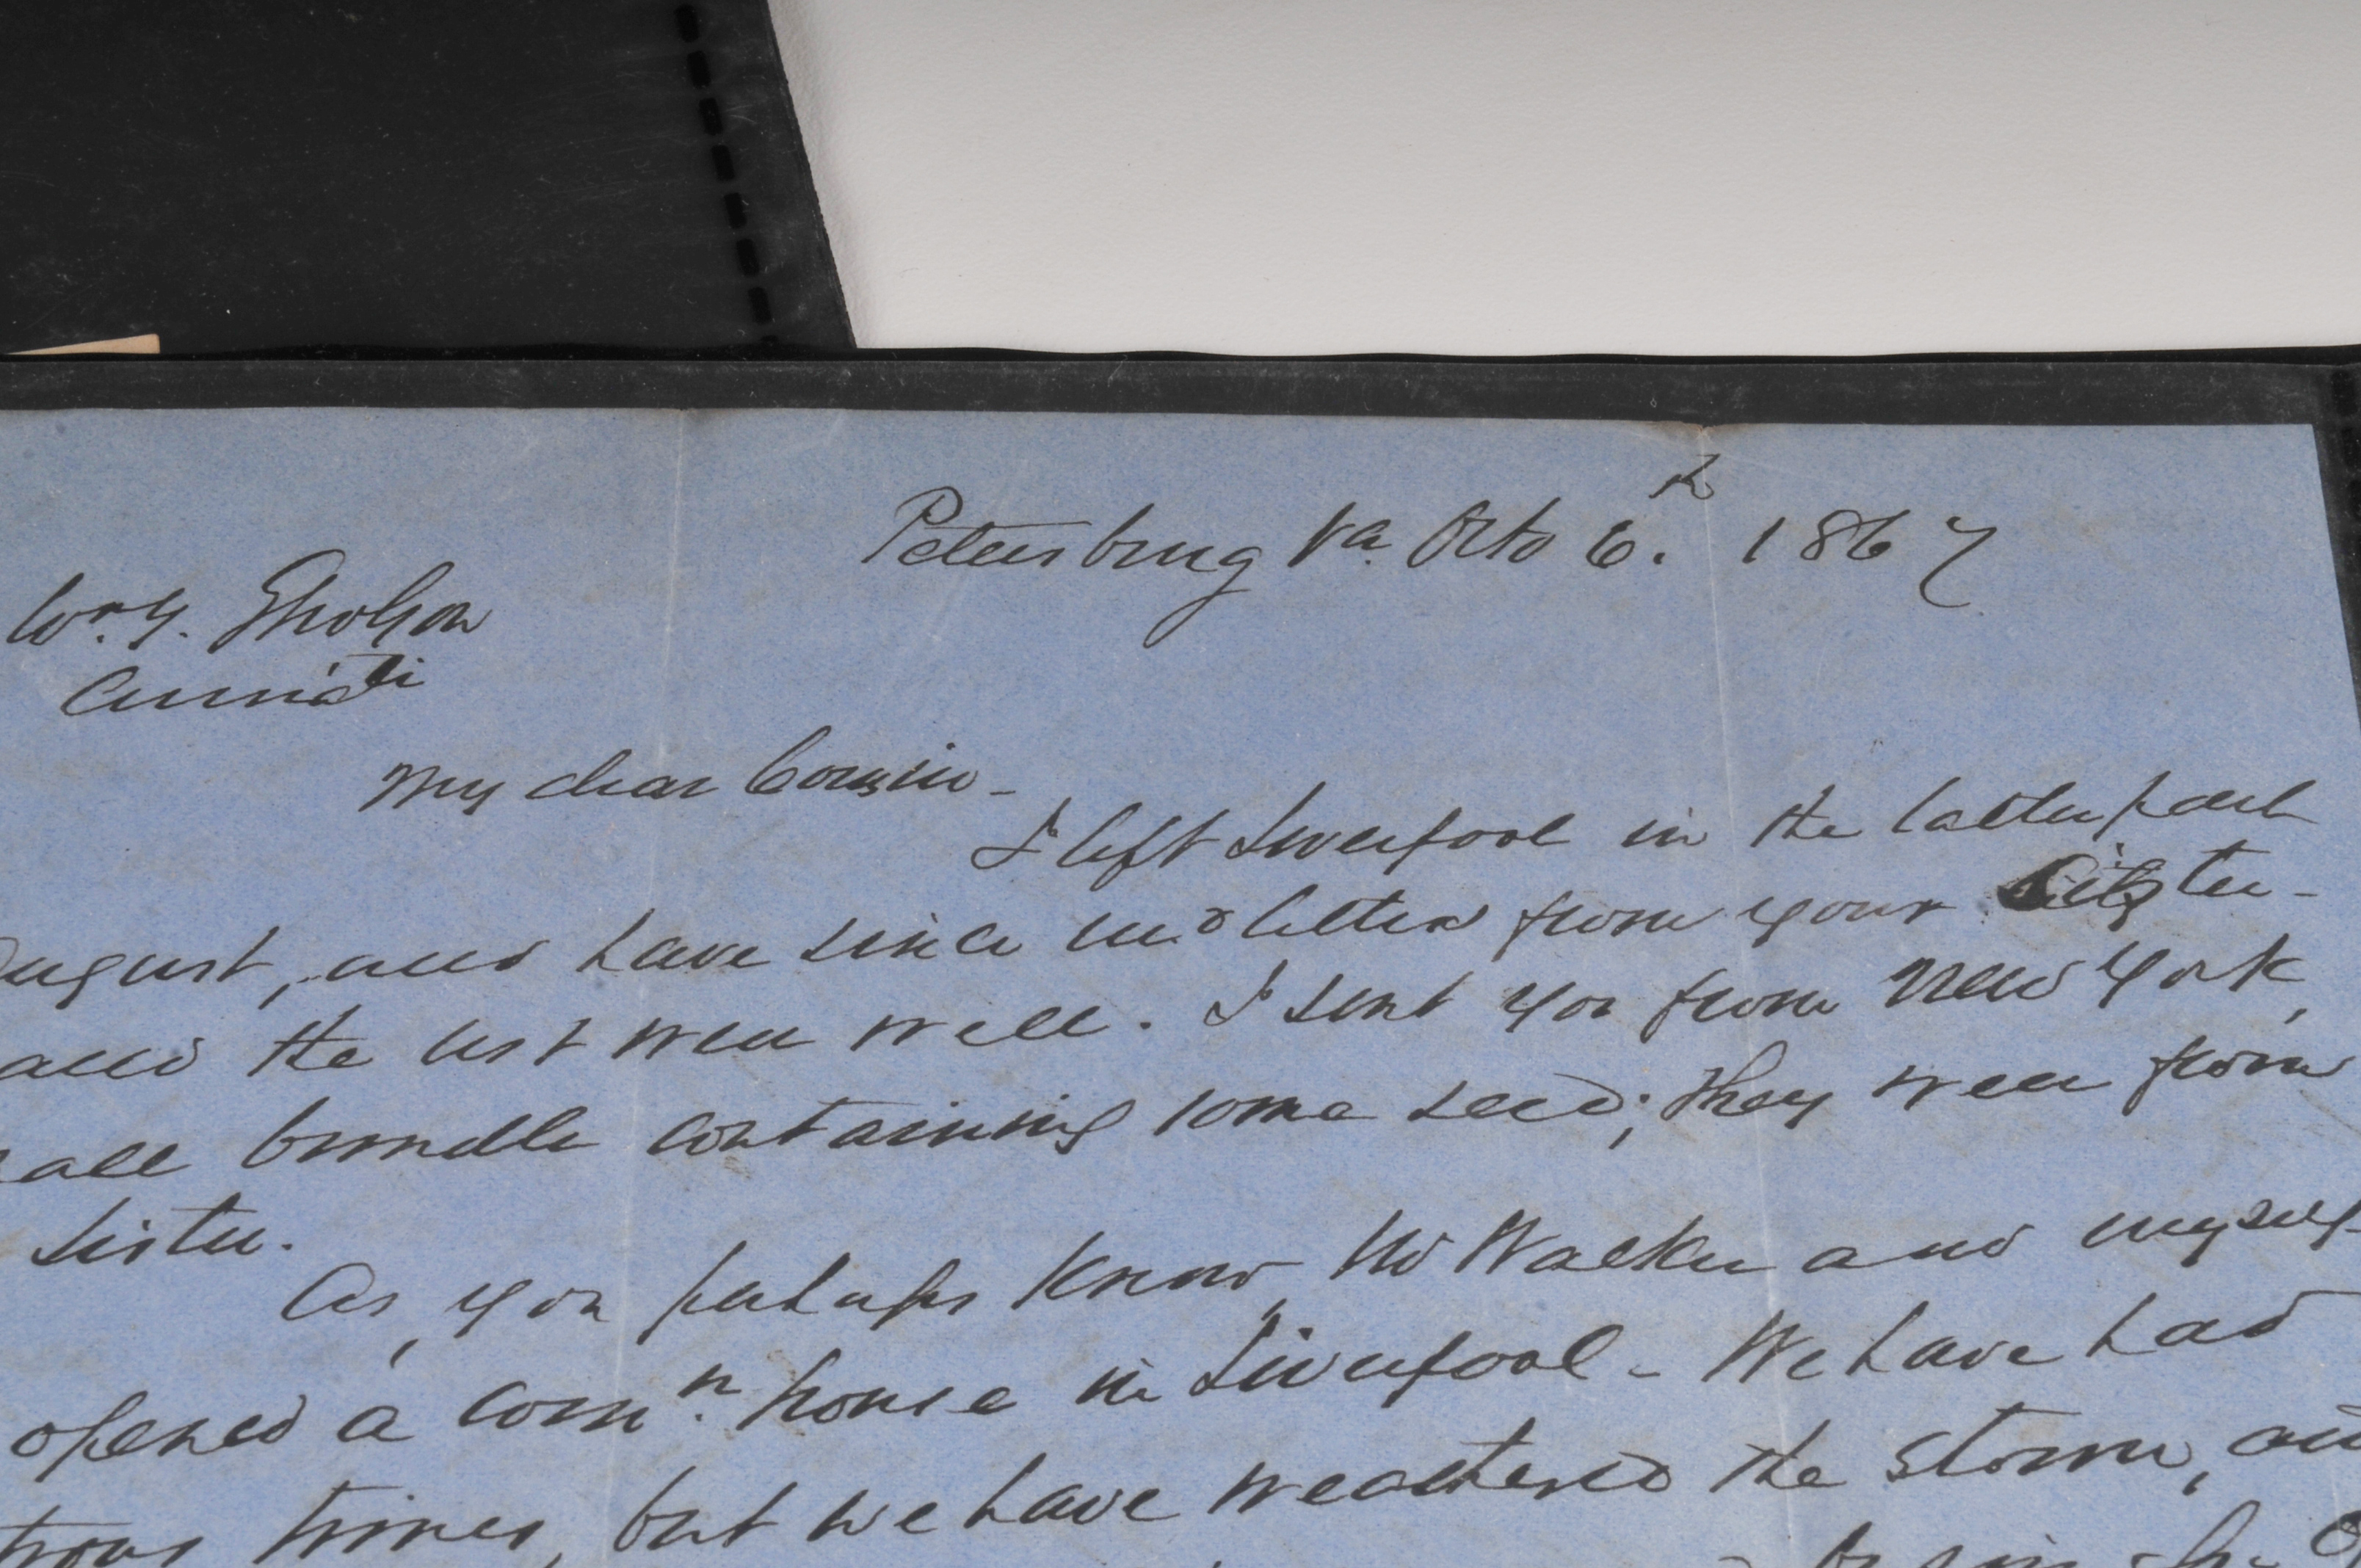 Petersburg Va. Octo 6.th 1867
Wm. Y. Gholson
Cincinnati
My dear Cousin -
I left Liverpool in the latter part
August, and have since recd letters from your Sister -
and the rest were well. I sent you from New York,
all bundle containing some seed; they were from
Sister.
As you perhaps know, Mr Walker and myself
opened a commn. house in Liverpool - We have had
times, but we have weathered the storm, and